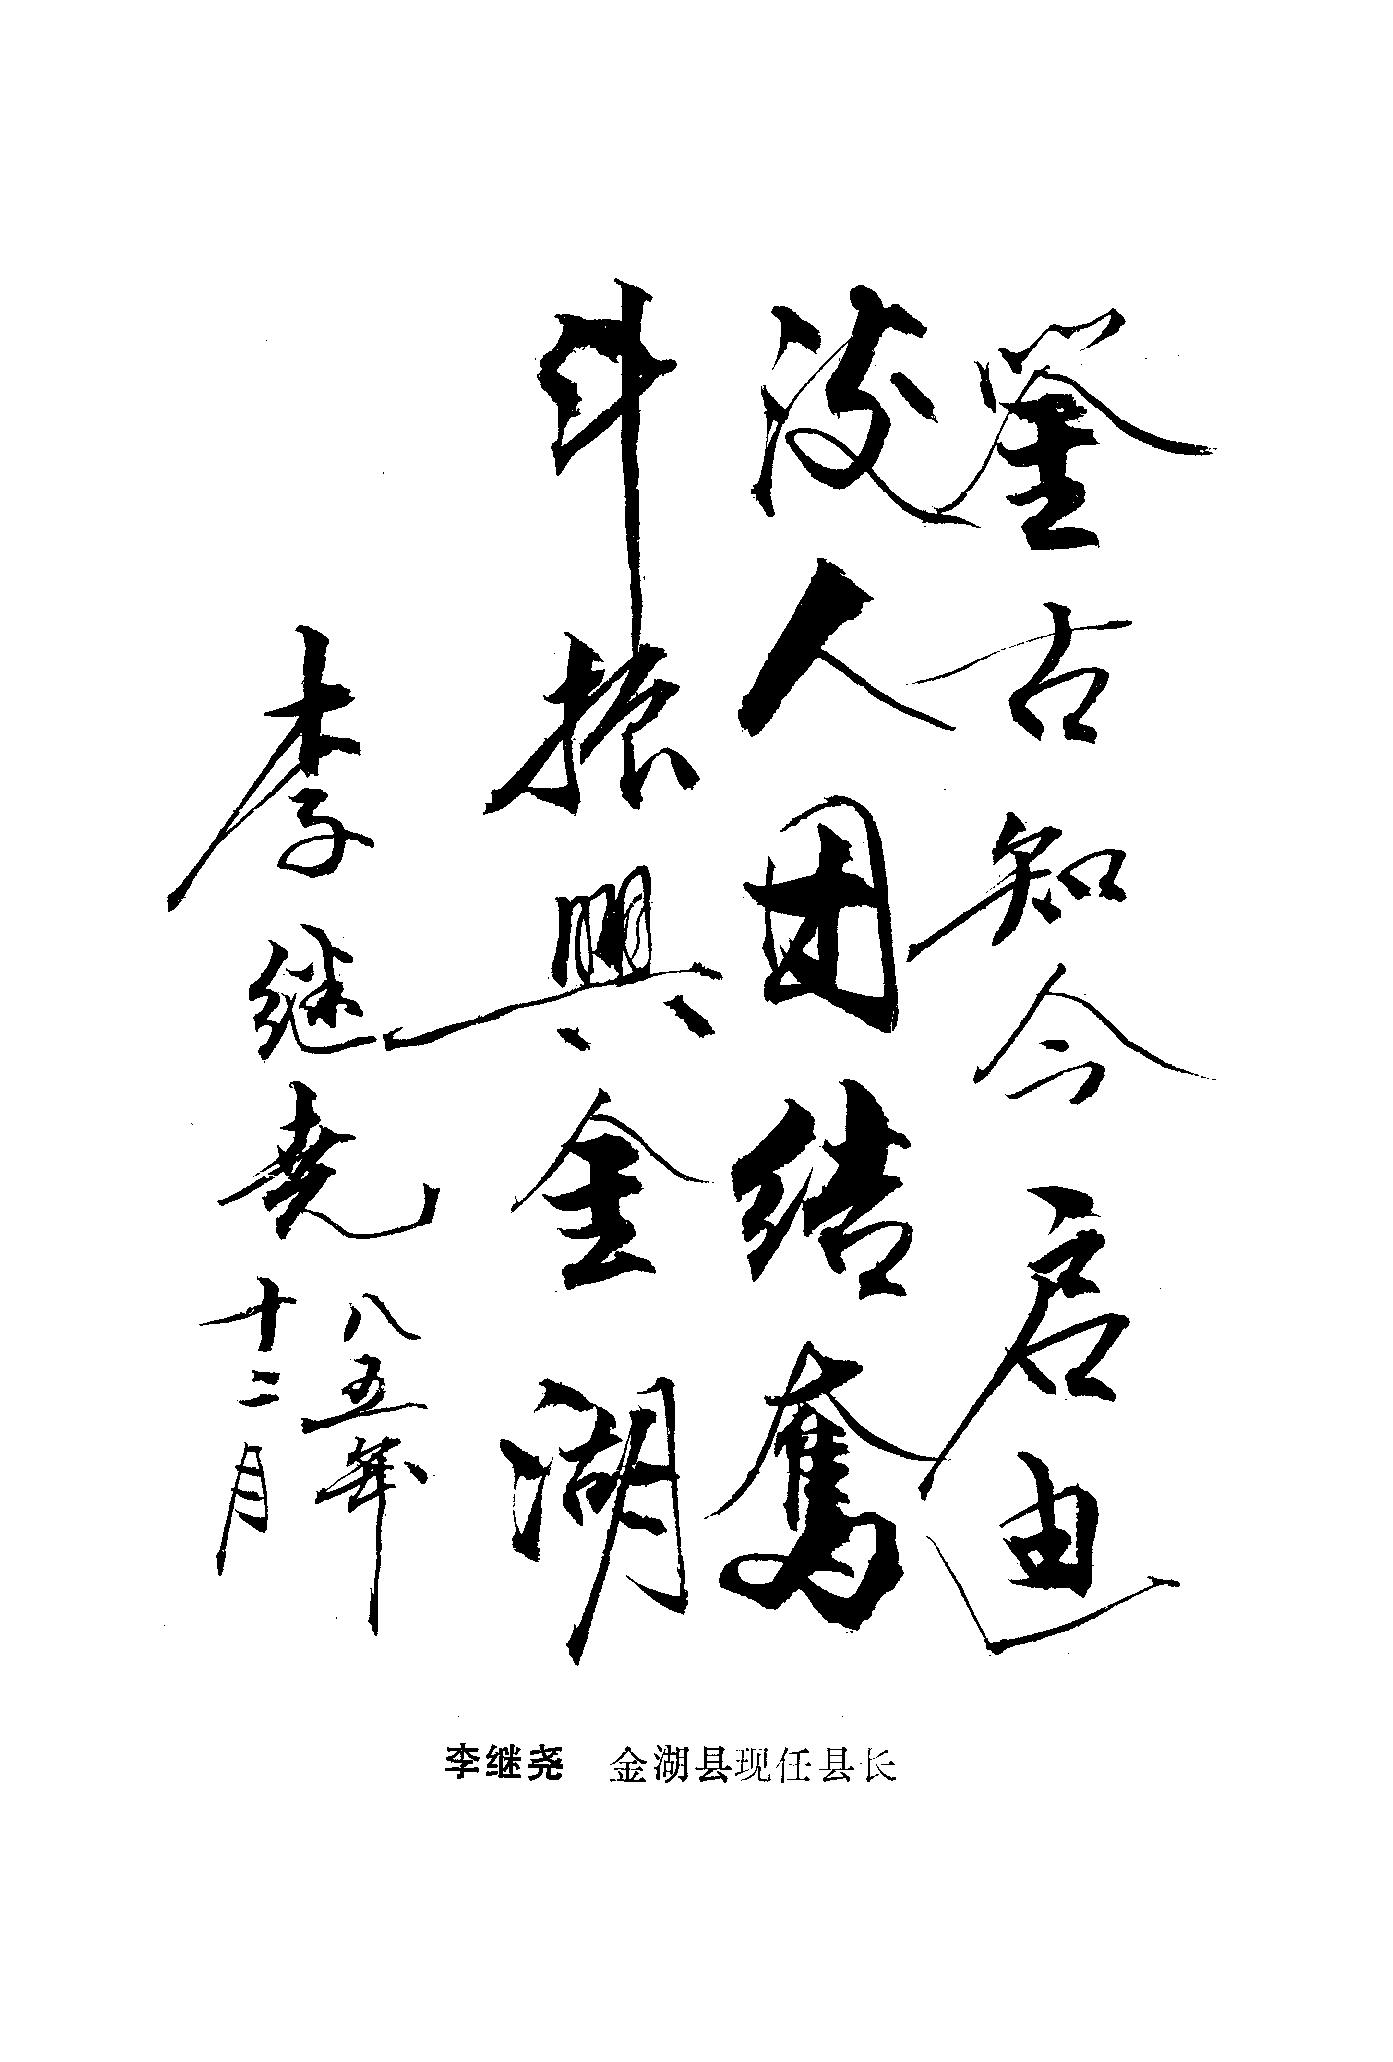 鉴古知今启迪
後人团结奮
斗振興金湖
李继尧
八五年
十二月
李继尧 金湖县现任县长